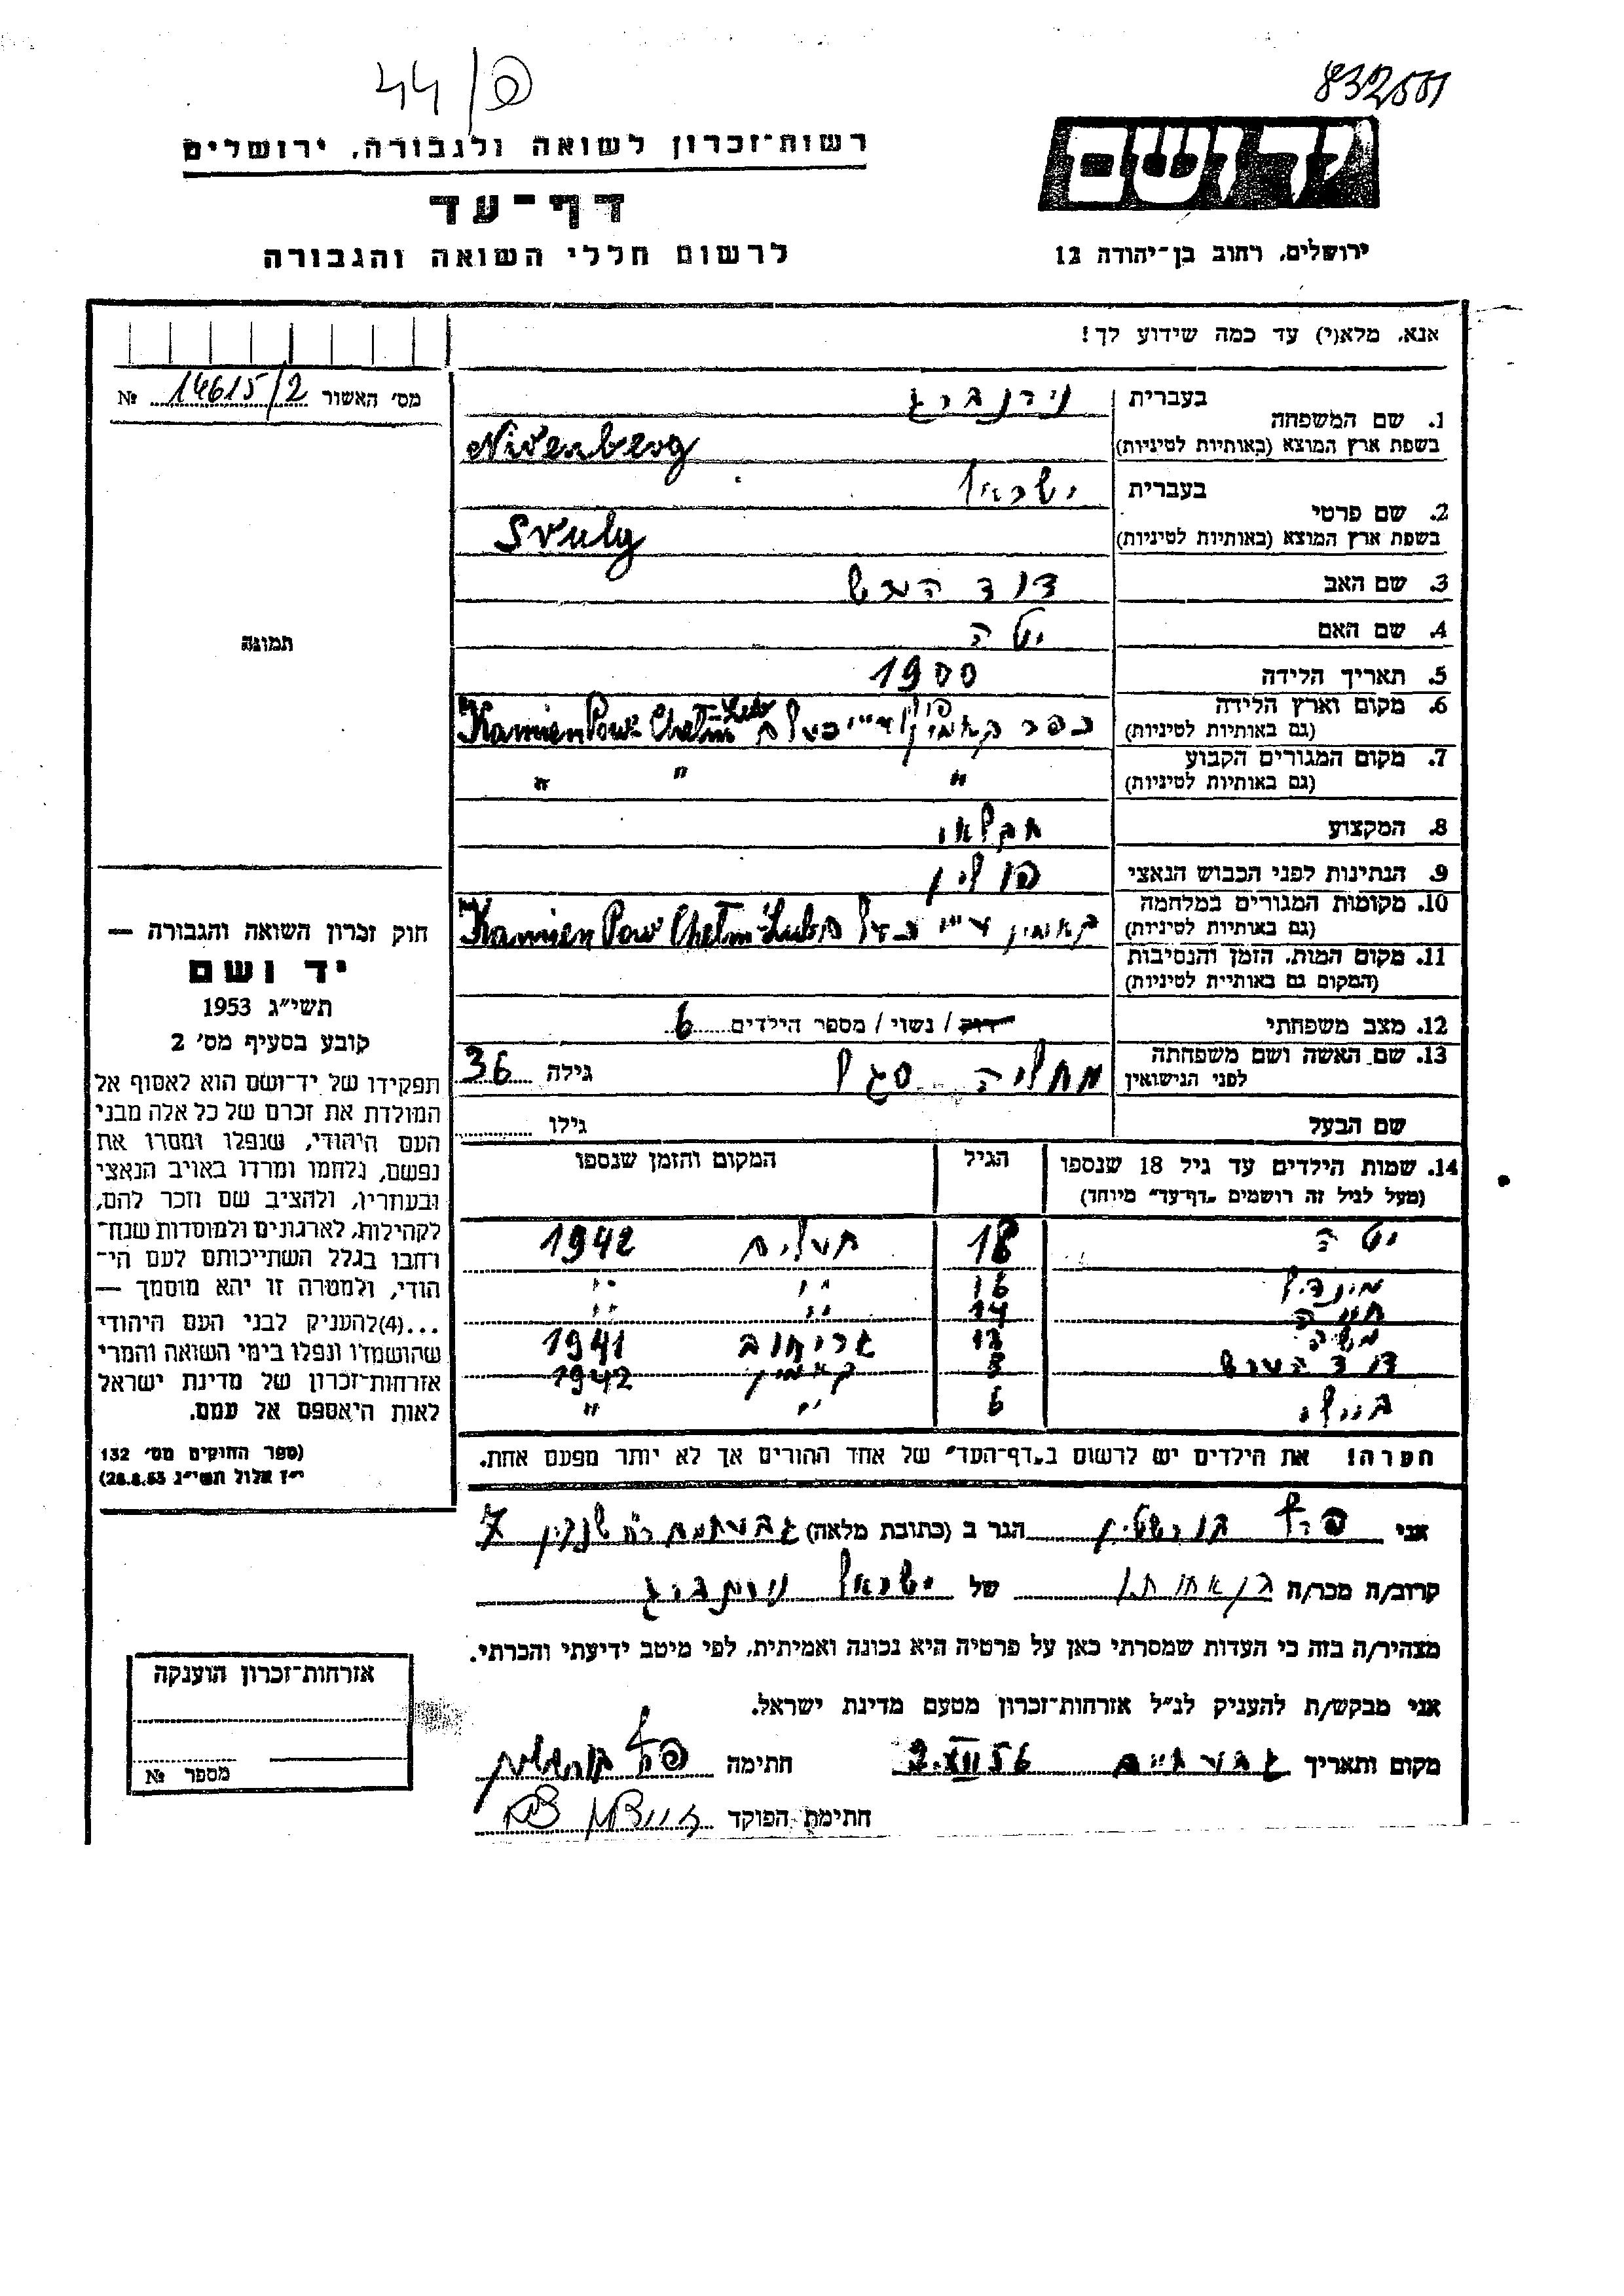 44/פ
832551
יד ושם
רשות־זכרון לשואה ולגבורה, ירושלים
דף־עד
לרשום חללי השואה והגבורה
ירושלים, רחוב בן־יהודה 12
אנא, מלא(י) עד כמה שידוע לך!
מס׳ האשור 14615/2 №
1. שם המשפחה
בעברית נירנברג
בשפת ארץ המוצא (באותיות לטיניות) Nirenberg
2. שם פרטי
בעברית ישראל
בשפת ארץ המוצא (באותיות לטיניות) Sruly
3. שם האב דוד הערש
4. שם האם יטה
5. תאריך הלידה 1900
6. מקום וארץ הלידה
(גם באותיות לטיניות) כפר קאמין Kamien Pow. Chelm-Lub
7. מקום המגורים הקבוע
(גם באותיות לטיניות) " " "
8. המקצוע חקלאי
9. הנתינות לפני הכבוש הנאצי פולין
10. מקומות המגורים במלחמה
(גם באותיות לטיניות) קאמין Kamien Pow Chelm-Lub
11. מקום המות, הזמן והנסיבות
(המקום גם באותיית לטיניות)
12. מצב משפחתי רוק / נשוי / מספר הילדים 6
13. שם האשה ושם משפחתה
לפני הנישואין סגל גילה 36
שם הבעל גילו
14. שמות הילדים עד גיל 18 שנספו
(מעל לגיל זה רושמים „דף־עד״ מיוחד)
הגיל
המקום והזמן שנספו
יטה 18 חעלים 1942
מינדל 16 " "
חיה 14 " "
משה 12 1941
דוד הערש 8 קאמין 1942
ביילי 6 " "
הערה! את הילדים יש לרשום ב„דף־העד״ של אחד ההורים אך לא יותר מפעם אחת.
אני בורשטין הגר ב (כתובת מלאה) גבעתיים 7
קרוב/ה מכר/ה בן אחותו של ישראל נירנברג
מצהיר/ה בזה כי העדות שמסרתי כאן על פרטיה היא נכונה ואמיתית, לפי מיטב ידיעתי והכרתי.
אני מבקש/ת להעניק לנ״ל אזרחות־זכרון מטעם מדינת ישראל.
מקום ותאריך גבעתיים 2.XII.56 חתימה
חתימת הפוקד
תמונה
חוק זכרון השואה והגבורה —
יד ושם
תשי״ג 1953
קובע בסעיף מס׳ 2
תפקידו של יד־ושם הוא לאסוף אל
המולדת את זכרם של כל אלה מבני
העם היהודי, שנפלו ומסרו את
נפשם, נלחמו ומרדו באויב הנאצי
ובעוזריו, ולהציב שם וזכר להם,
לקהילות, לארגונים ולמוסדות שנח־
רבו בגלל השתייכותם לעם הי־
הודי, ולמטרה זו יהא מוסמך —
...(4)להעניק לבני העם היהודי
שהושמדו ונפלו בימי השואה והמרי
אזרחות־זכרון של מדינת ישראל
לאות היאספם אל עמם.
(ספר החוקים מס׳ 132
י״ז אלול תשי״ג 28.8.53)
אזרחות־זכרון הוענקה
מספר №